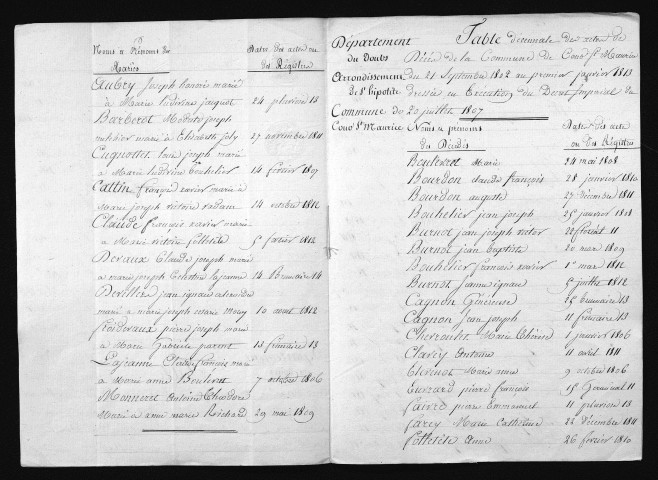 Noms et Prénoms des
Mariés
Dates des actes ou
des Registres
Aubry Joseph honoré marié
à Marie ludivine jacquot 24 pluviose 13
Barberot Modeste joseph
marié à Elisabeth joly 27 novembre 1811
Cugnottet louis joseph marié
à Marie ludivine Bouhelier 14 fevrier 1807
Cattin françois xavier marié à
Marie joseph victoire 14 octobre 1812
Claude francois xavier marié
à Marie victoire folletête 5 fevrier 1812
Devaux Claude joseph marié
à marie joseph Celestine lajeanne 14 Brumaire 14
Devillers jean ignace
marié à marie joseph cesarie Mercy 10 aout 1812
froidevaux pierre joseph marié
à Marie Gabriele parent 13 frimaire 13
Lajeanne Claude francois marié
à Marie anne Bouleret 7 octobre 1806
Monneret antoine Théodore
Marié à anne marie Richard 29 mai 1809
Département
du Doubs
arrondissement
de St hipolite
Commune de
Cour St Maurice
Table decennale des actes de
Décès de la Commune de Cour St Maurice
du 21 Septembre 1802 au premier janvier 1813
dressée en Execution du Decret Imperial du
20 juillet 1807
Noms et prénoms
des Décédés
Dates des actes
ou des Registres
Bouleret Marie 24 mai 1808
Bourdon claude françois 28 janvier 1810
Bourdon auguste 27 décembre 1811
Bouhelier jean joseph 25 janvier 1808
Burnot jean joseph victor 22 floreal 11
Burnot jean baptiste 20 mars 1809
Bouhelier francois xavier 1er mars 1812
Burnot jeanne ignace 5 juillet 1812
Cagnon Généreuse 25 Brumaire 13
Cagnon Jean joseph 11 frimaire 13
Chevroulet Marie Thérèse 1 janvier 1806
Clavey Antoine 11 avril 1811
Clerenot Marie anne 9 octobre 1806
Euvrard pierre françois 15 Germinal 11
faivre pierre Emmanuel 11 pluviose 13
farey Marie Catherine 22 Décembre 1811
folletête anne 26 fevrier 1810